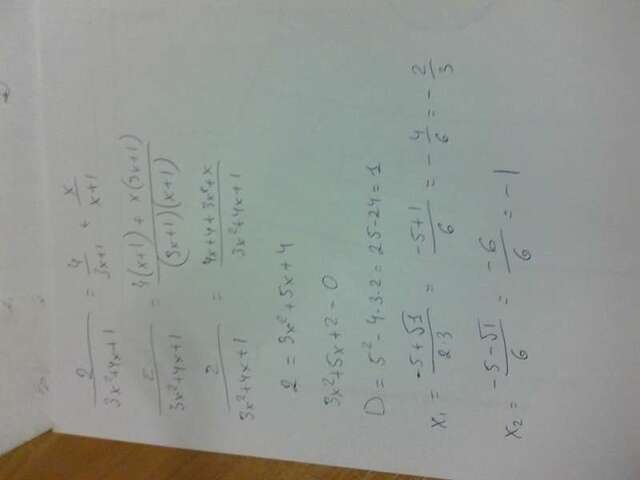 2/(3x²+4x+1) = 4/(3x+1) + x/(x+1)
2/(3x²+4x+1) = (4(x+1) + x(3x+1))/((3x+1)(x+1))
2/(3x²+4x+1) = (4x+4+3x²+x)/(3x²+4x+1)
2 = 3x²+5x+4
3x²+5x+2=0
D = 5²-4·3·2 = 25-24 = 1
x₁ = (-5+√1)/(2·3) = (-5+1)/6 = -4/6 = -2/3
x₂ = (-5-√1)/6 = -6/6 = -1